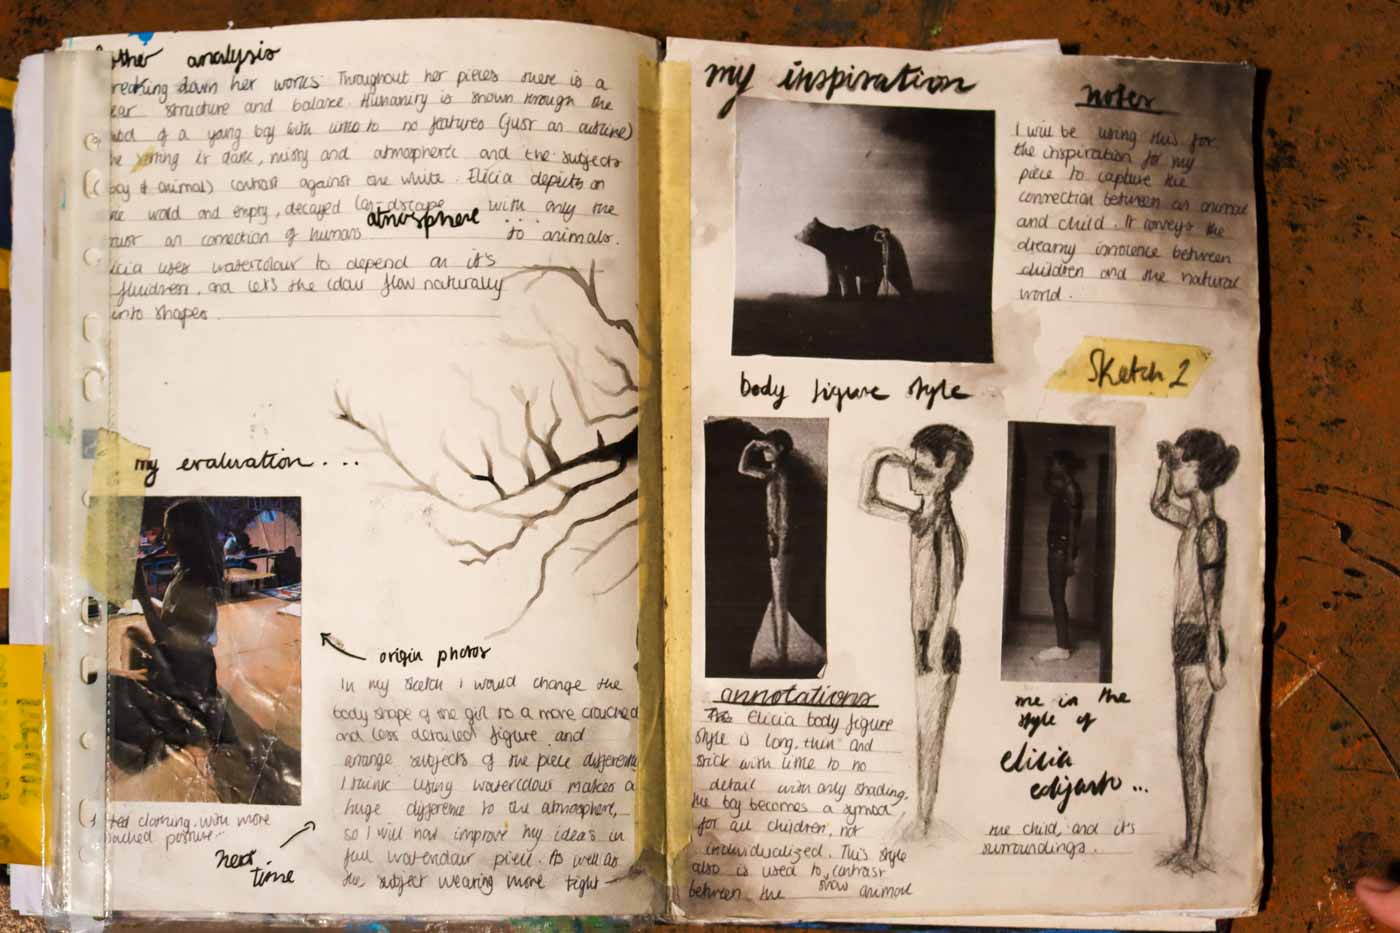 analysis
down her works. Throughout her pieces there is a
structure and balance. Humanity is shown through the
of a young boy with little to no features (just an outline)
is dark, misty and atmospheric and the subjects
animal) contrast against the white. Elicia depicts an
and empty, decayed landscape with only the
atmosphere ...
an connection of humans to animals.
uses watercolour to depend on it's
fluidness, and let's the colour flow naturally
into shapes.
my evaluation...
origin photos
In my sketch I would change the
body shape of the girl to a more crouched
and less detailed figure and
arrange subjects of the piece differently
I think using watercolour makes a
huge difference to the atmosphere,
so I will now improve my ideas in
full watercolour piece. As well as
the subject wearing more tight
clothing, with more
posture...
next
time
my inspiration
notes
I will be using this for
the inspiration for my
piece to capture the
connection between an animal
and child. It conveys the
dreamy innocence between
children and the natural
world.
Sketch 2
body figure style
annotations
Elicia body figure
style is long, thin and
stick with little to no
detail with only shading.
the boy becomes a symbol
for all children, not
individualized. This style
also is used to contrast
show
between the animal
me in the
style of
elicia
edijanto...
the child, and it's
surroundings.